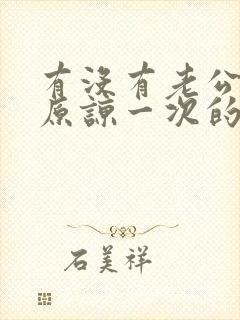 有没有老公
原谅一次的
石美祥